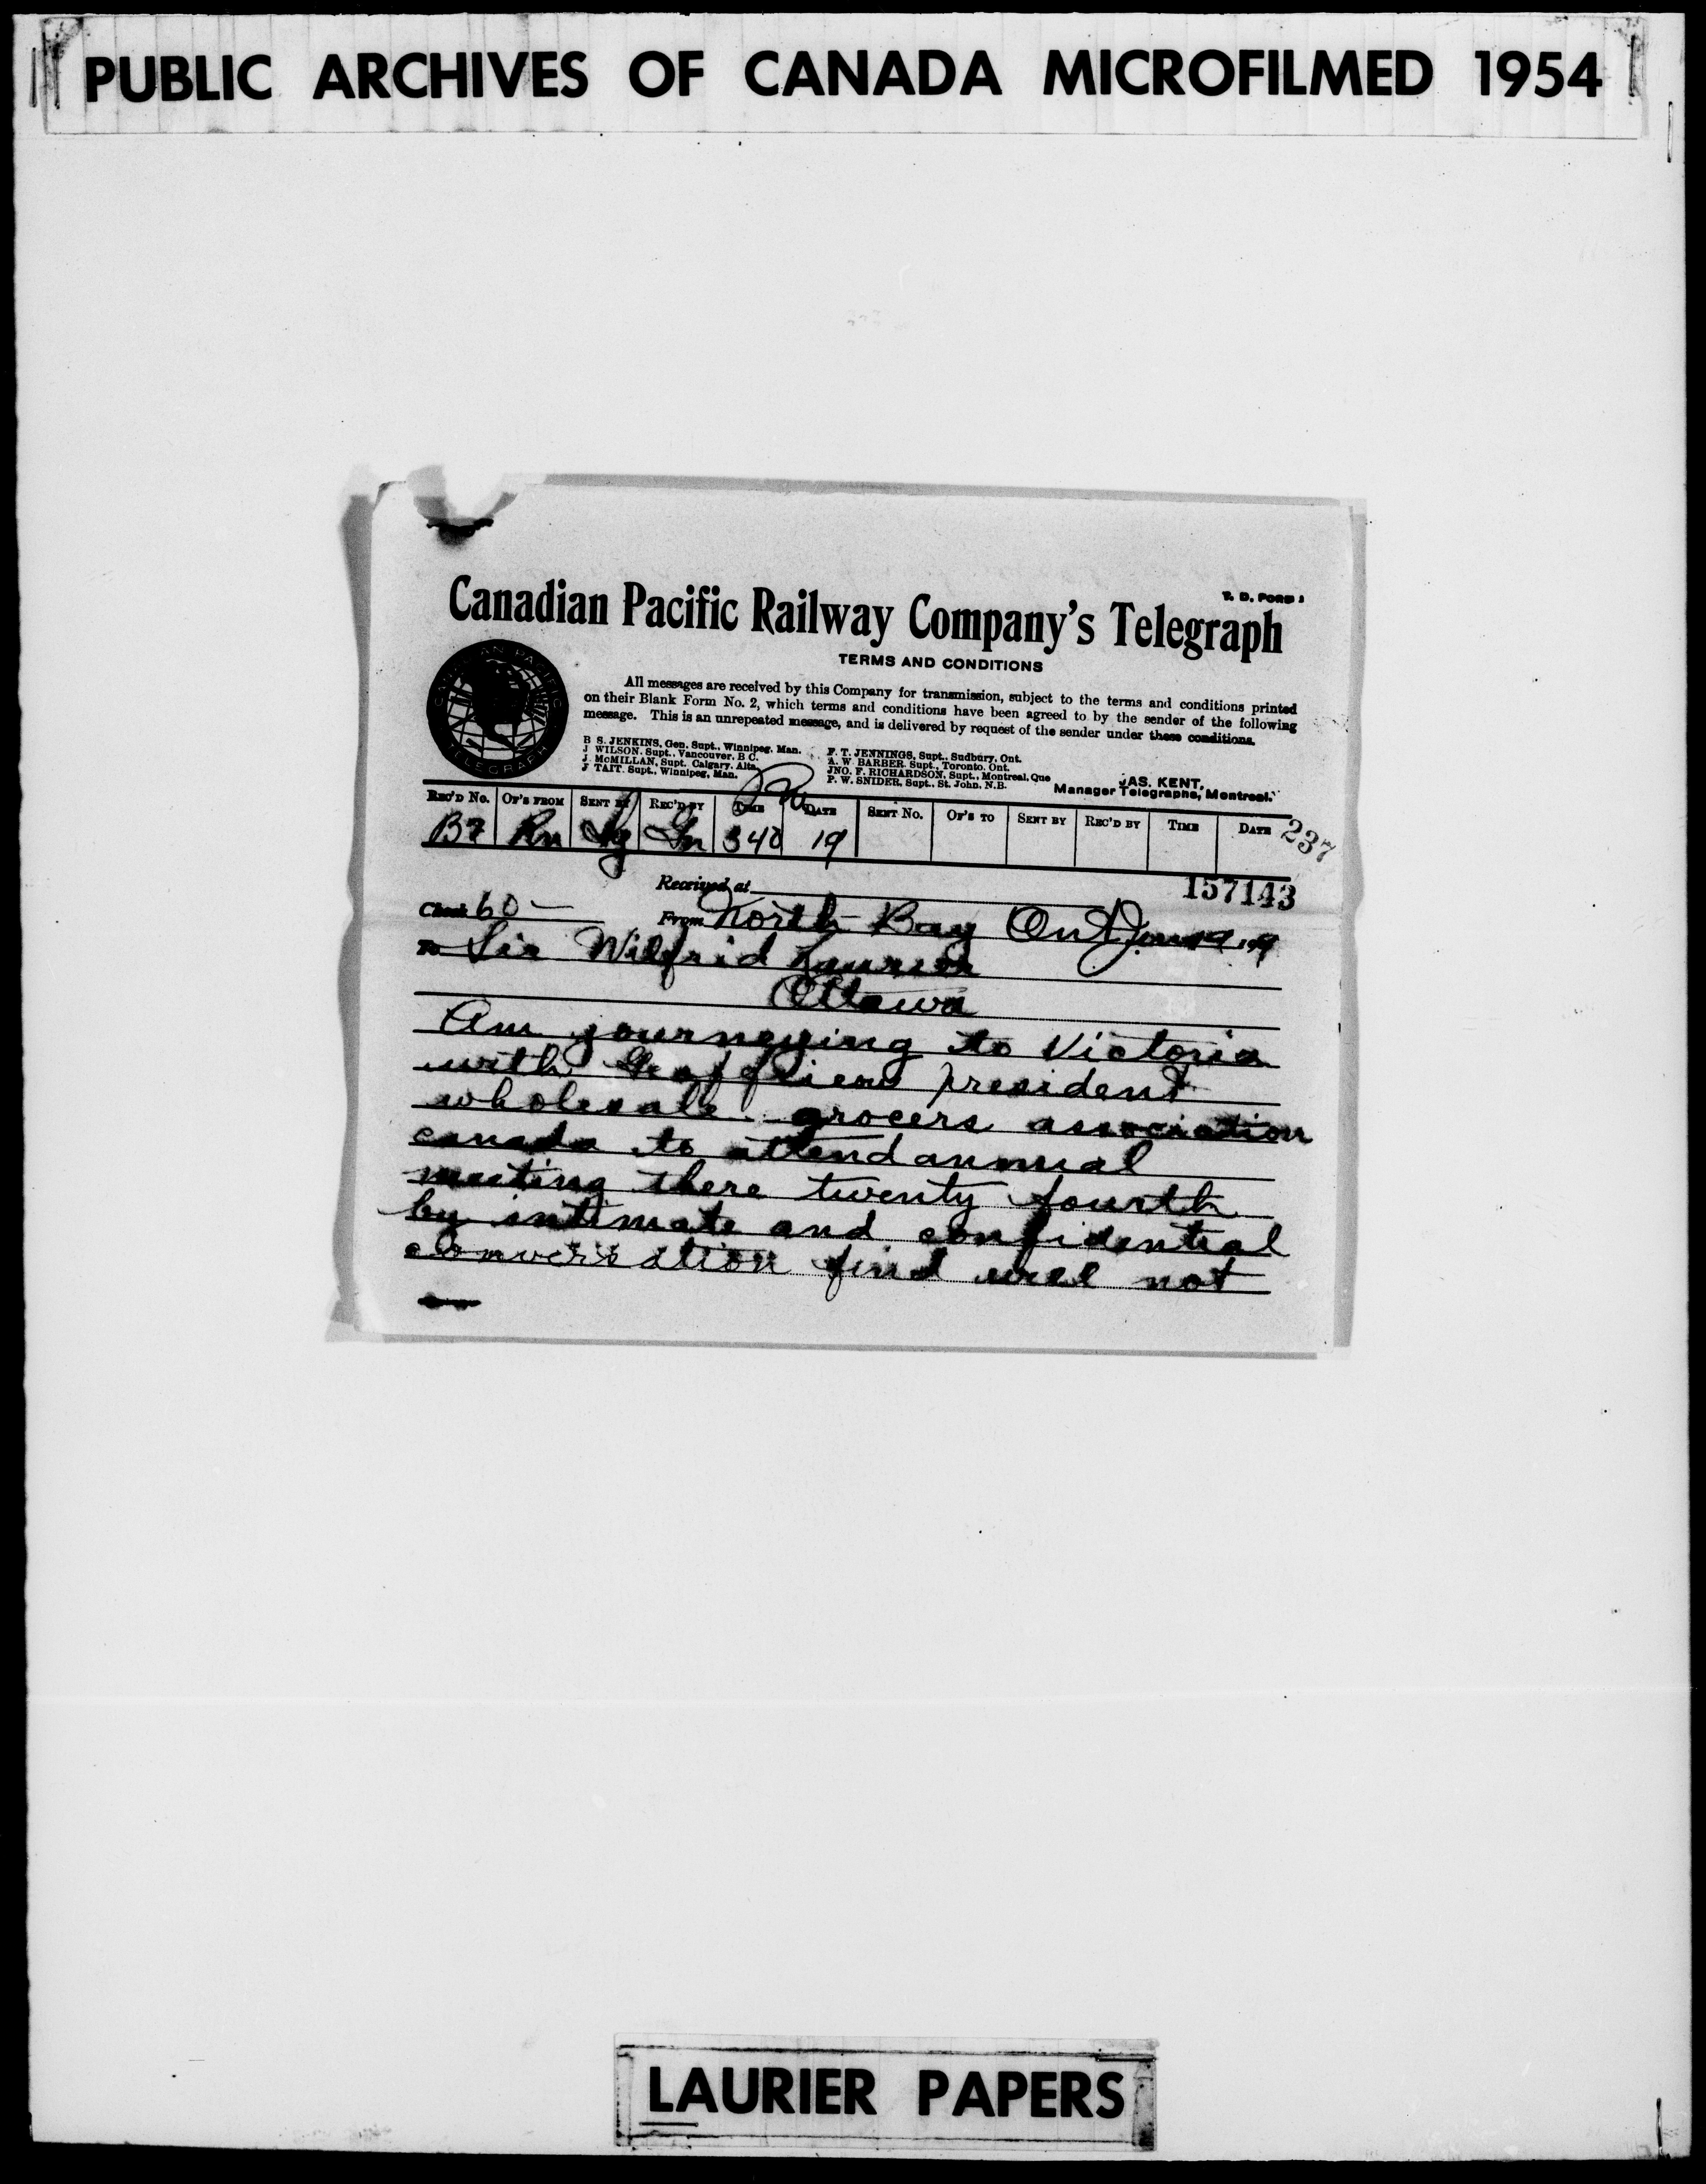 PUBLIC ARCHIVES OF CANADA MICROFILMED 1954
T. D. FORM 1
Canadian Pacific Railway Company's Telegraph
TERMS AND CONDITIONS
CANADIAN PACIFIC
TELEGRAPH
All messages are received by this Company for transmission, subject to the terms and conditions printed
on their Blank Form No. 2, which terms and conditions have been agreed to by the sender of the following
message. This is an unrepeated message, and is delivered by request of the sender under these conditions.
B S. JENKINS, Gen. Supt., Winnipeg, Man.
J WILSON. Supt., Vancouver, B C.
J. McMILLAN, Supt. Calgary, Alta.
J TAIT. Supt., Winnipeg, Man.
F. T. JENNINGS, Supt., Sudbury, Ont.
A. W BARBER. Supt., Toronto. Ont.
JNO. F. RICHARDSON, Supt., Montreal, Que
P. W. SNIDER, Supt., St. John, N.B.
JAS. KENT,
Manager Telegraphs, Montreal.
REC'D No. OF'S FROM SENT BY REC'D BY TIME DATE SENT No. OF'S TO SENT BY REC'D BY TIME DATE
B7 Rn 340 19
237
157143
Received at
Check 60 From North Bay Ont Jan 19
To Sir Wilfrid Laurier
Ottawa
Am journeying to Victoria
with Geoffrion president
wholesale grocers association
canada to attend annual
meeting there twenty fourth
by intimate and confidential
conversation find will not
LAURIER PAPERS